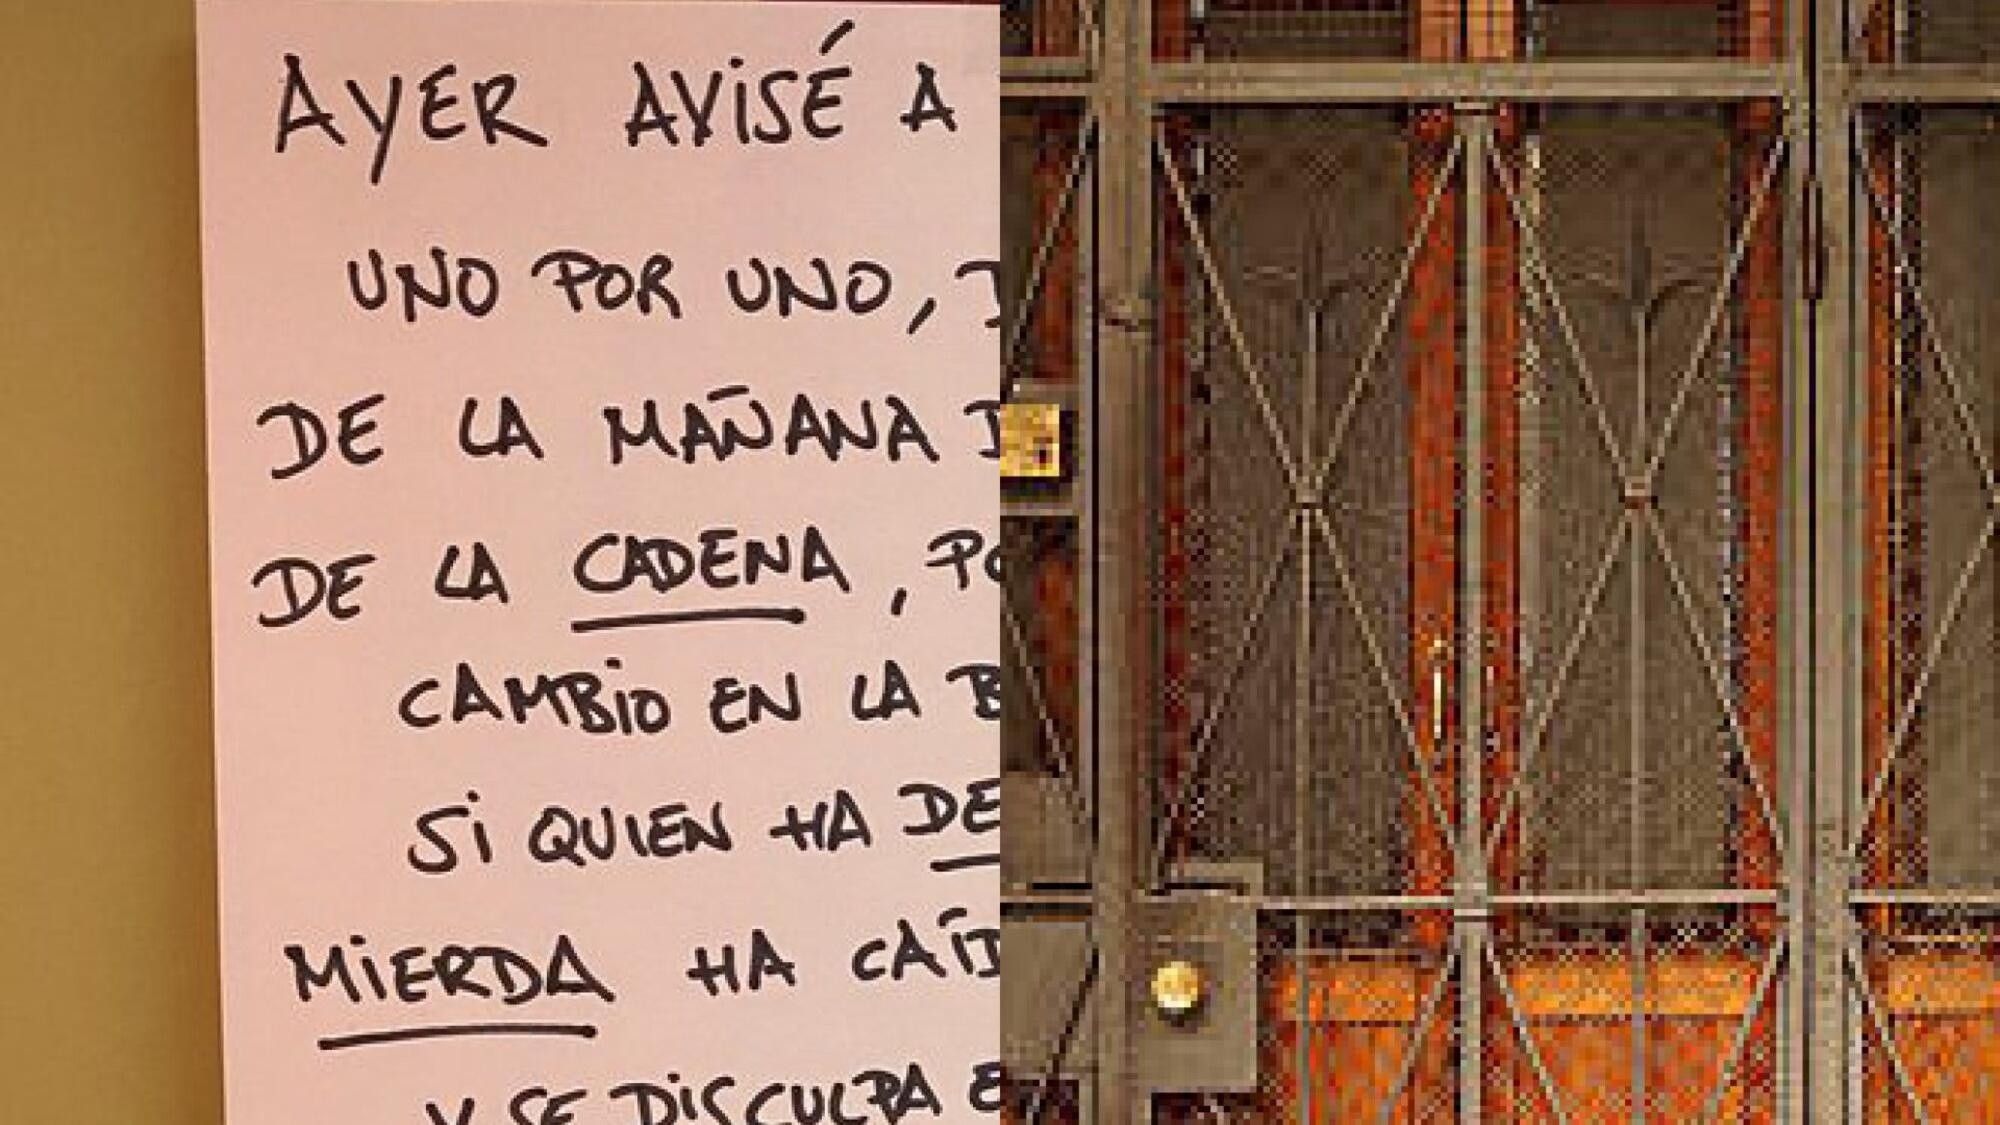 AYER AVISÉ A
UNO POR UNO,
DE LA MAÑANA
DE LA CADENA,
CAMBIO EN LA
SI QUIEN HA
MIERDA HA
Y SE DISCULPA